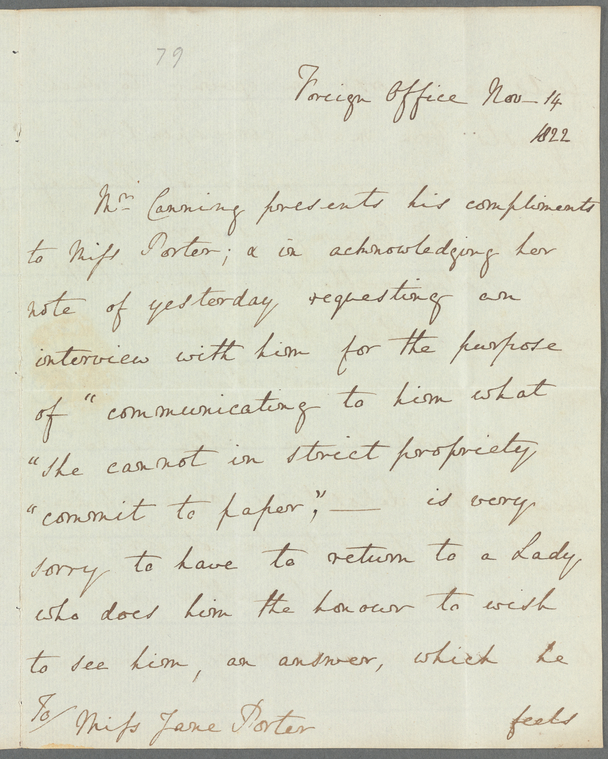 79
Foreign Office Nov— 14
1822
Mr. Canning presents his compliments
to Miſs Porter; & in acknowledging her
note of yesterday requesting an
interview with him for the purpose
of "communicating to him what
"she cannot in strict propriety
"commit to paper," — is very
sorry to have to return to a Lady,
who does him the honour to wish
to see him, an answer, which he
To/ Miſs Jane Porter feels